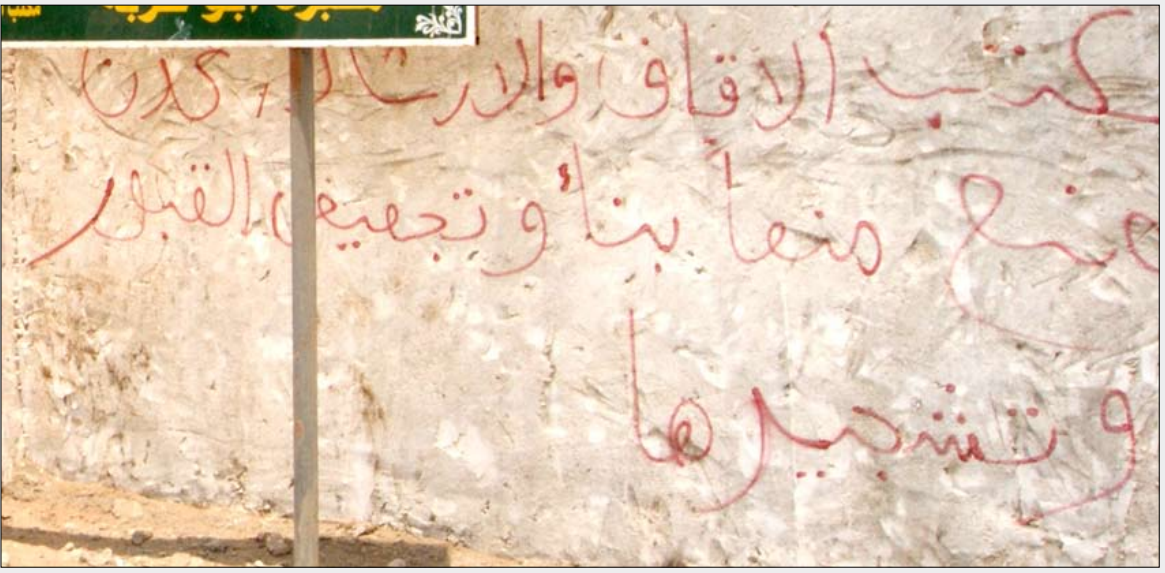 كتب الاقاف والارشاد عدن
منع منعاً بناء و تجصيص القبور
و تشجيرها